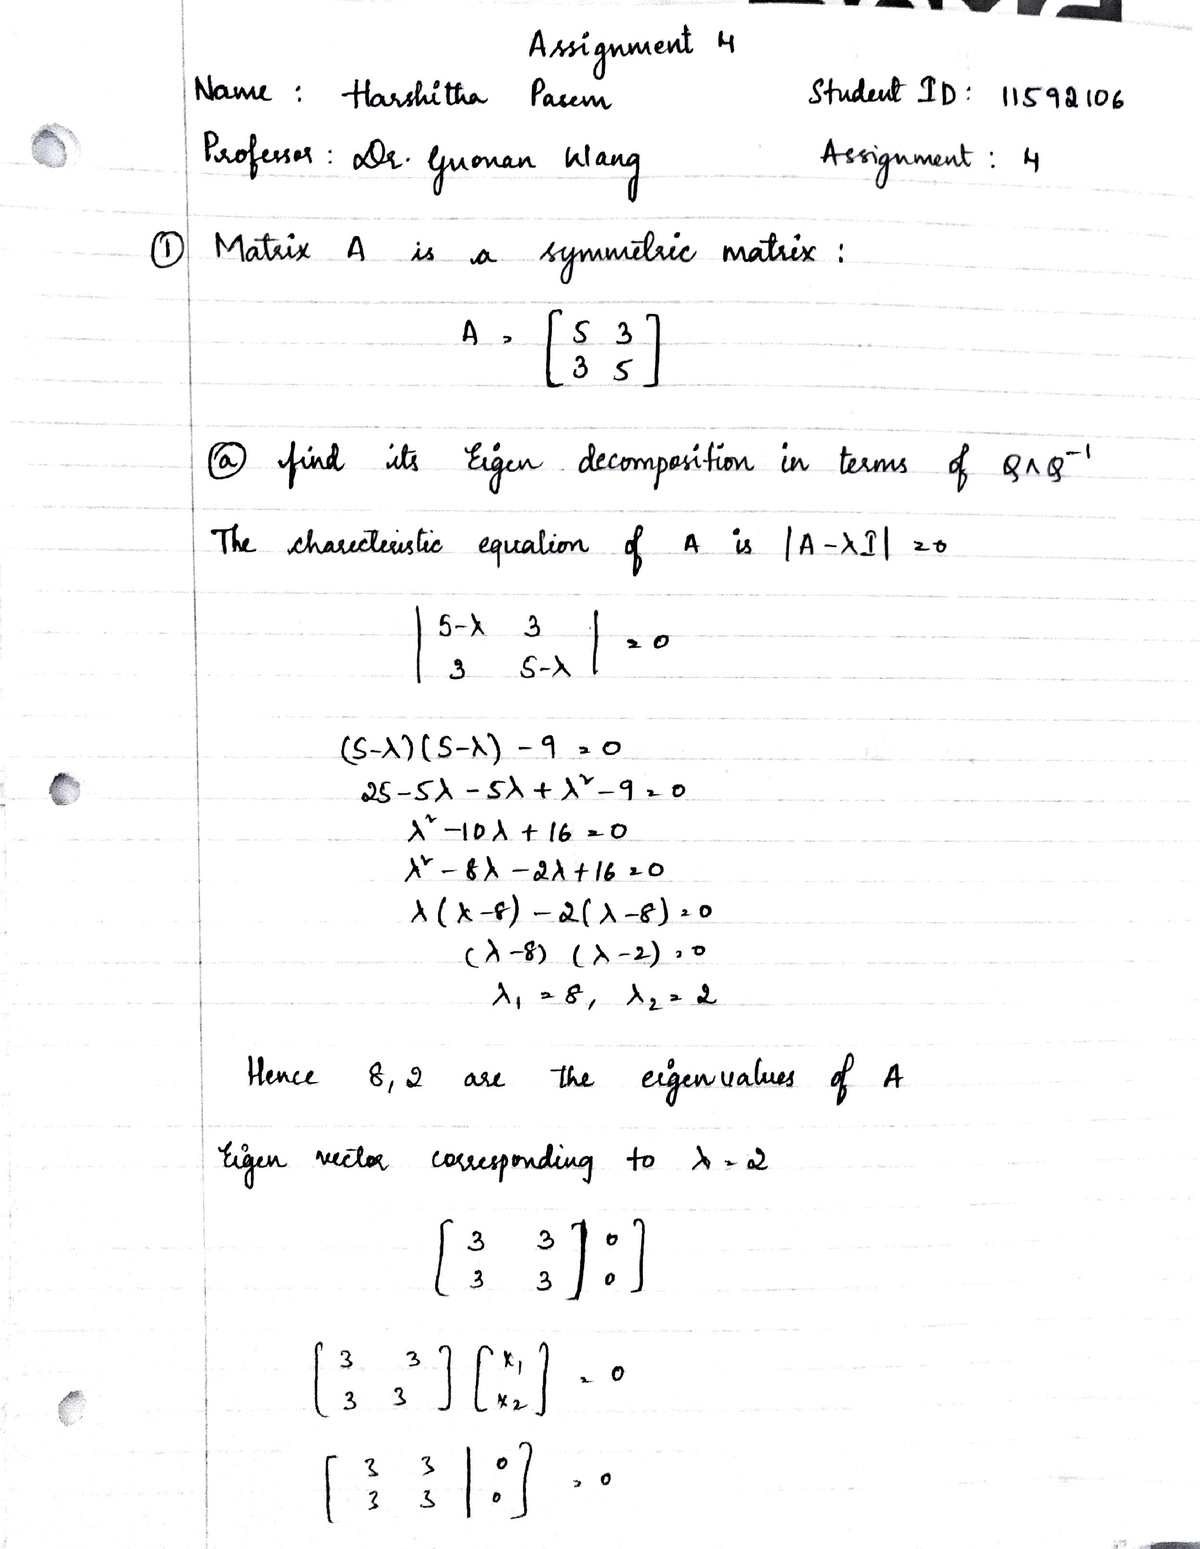 Assignment 4
Name : Harshitha Pasem Student ID : 11592106
Professor : Dr. Guonan Wang Assignment : 4
① Matrix A is a symmetric matrix :
A = [ 5 3
3 5 ]
ⓐ find its Eigen decomposition in terms of QΛQ⁻¹
The charecteristic equation of A is |A-λI| = 0
| 5-λ 3 | = 0
| 3 5-λ |
(5-λ)(5-λ) - 9 = 0
25 - 5λ - 5λ + λ² - 9 = 0
λ² - 10λ + 16 = 0
λ² - 8λ - 2λ + 16 = 0
λ(λ-8) - 2(λ-8) = 0
(λ-8) (λ-2) = 0
λ₁ = 8, λ₂ = 2
Hence 8, 2 are the eigen values of A
Eigen vector corresponding to λ = 2
[ 3 3 ] 0 ]
[ 3 3 ] 0 ]
[ 3 3 ] [ x₁ ] = 0
[ 3 3 ] [ x₂ ]
[ 3 3 | 0 ] = 0
[ 3 3 | 0 ]